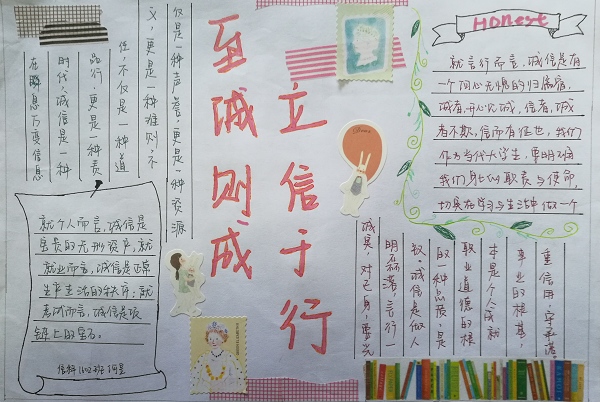 在瞬息万变信息
时代，诚信是一种
品行，更是一种责
任，不仅是一种道
义，更是一种准则，不
仅是一种声誉，更是一种资源
至诚则成
立信于行
Honest
就言行而言，诚信是有
一个问心无愧的归宿，
诚者，开心见诚，信者，诚
者不欺，信而有征也，我们
作为当代大学生，要明确
我们身上的职责与使命，
切实在学习与生活中做一个
诚实，对己身，要光
明磊落，言行一
致，诚信是做人
的一种品质，是
职业道德的根
本是个人成就
事业的根基，
重信用，守承诺
就个人而言，诚信是
宝贵的无形资产，就
就业而言，诚信是正常
生产生活的秩序；就
考试而言，诚信是
链上的宝石。
信科1102班